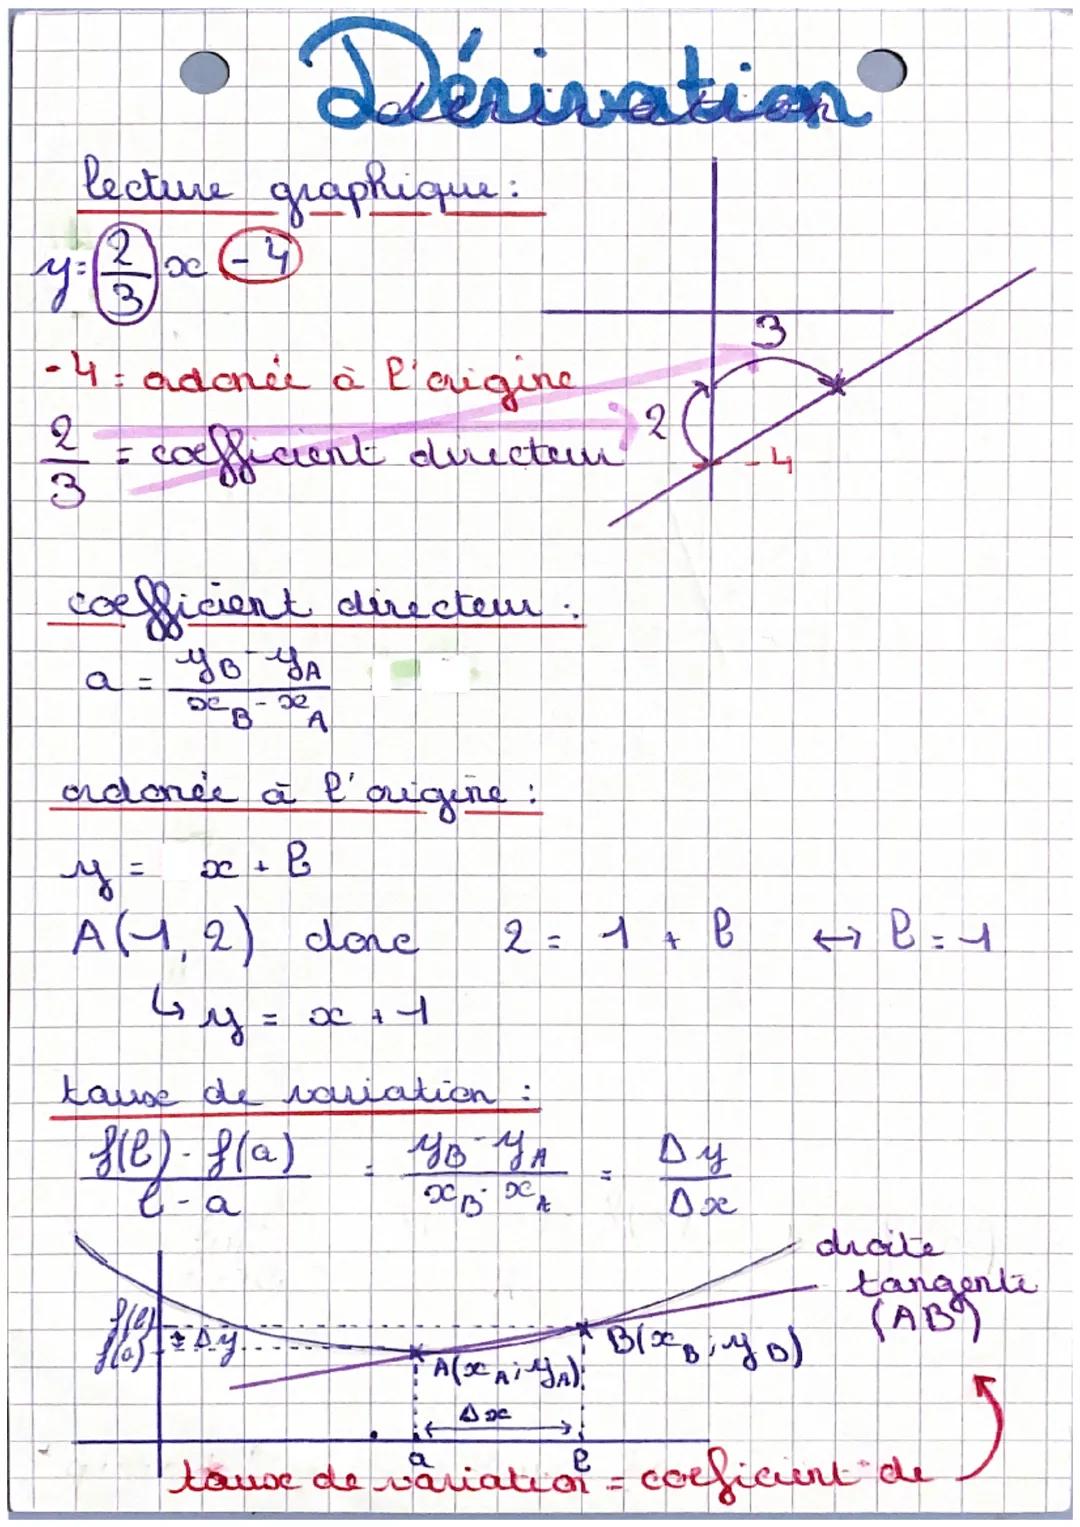 Dérivation
dérivation
lecture graphique :
y = 2/3 x - 4
-4 = adonée à l'origine
2/3 = coefficient directeur
3
2
-4
coefficient directeur :
a = yB - yA / xB - xA
ordonée à l'origine :
y = x + b
A(1, 2) donc 2 = 1 + b ↔ b = 1
↳ y = x + 1
taux de variation :
f(b) - f(a) / b - a = yB - yA / xB - xA = Δy / Δx
droite
tangente
(AB)
f(b)
f(a)
Δy
B(xB ; yB)
A(xA ; yA)
Δx
a b
taux de variation = coeficient de